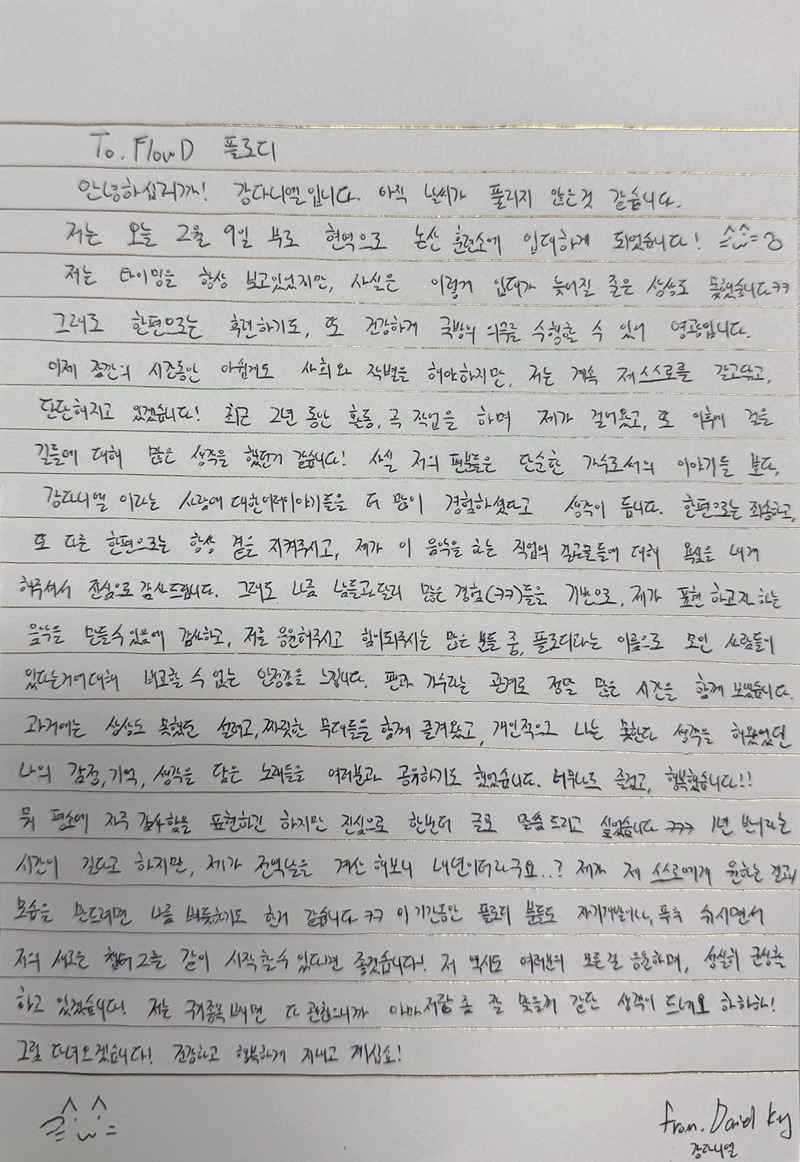 To. FlowD 플로디
안녕하십니까! 강다니엘입니다. 아직 날씨가 풀리지 않은것 같습니다.
저는 오늘 2월 9일 부로 현역으로 논산 훈련소에 입대하게 되었습니다!
저는 타이밍을 항상 보고있었지만, 사실은 이렇게 입대가 늦어질 줄은 상상도 못했습니다ㅋㅋ
그래도 한편으로는 후련하기도, 또 건강하게 국방의 의무를 수행할 수 있어 영광입니다.
이제 중간의 시간동안 아쉽게도 사회와 작별을 해야하지만, 저는 계속 제 스스로를 갈고닦고,
단단해지고 있겠습니다! 최근 2년 동안 활동, 곡 작업을 하며 제가 걸어왔고, 또 이후에 걸을
길들에 대해 많은 생각을 했던거 같습니다! 사실 저의 팬분들은 단순한 가수로서의 이야기들 보다,
강다니엘 이라는 사람에 대한여러이야기들을 더 많이 경험하셨다고 생각이 듭니다. 한편으로는 죄송하고,
또 다른 한편으로는 항상 곁을 지켜주시고, 제가 이 음악을 하는 직업의 결과물들에 대해 욕심을 내게
해주셔서 진심으로 감사드립니다. 그래도 나름 남들과달리 많은 경험(ㅋㅋ)들을 기반으로, 제가 표현 하고자 하는
음악을 만들수 있음에 감사하고, 저를 응원해주시고 힘이되주시는 많은 분들 중, 플로디라는 이름으로 모인 사람들이
있다는거에대해 비교할 수 없는 안정감을 느낍니다. 팬과 가수라는 관계로 정말 많은 시간을 함께 보냈습니다.
과거에는 상상도 못했던 설레고, 짜릿한 무대들을 함께 즐겨왔고, 개인적으로 나는 못한다 생각을 해왔었던
나의 감정, 기억, 생각을 담은 노래들을 여러분과 공유하기도 했었습니다. 너무나도 즐겁고, 행복했습니다!!
뭐 평소에 자주 감사함을 표현하긴 하지만 진심으로 한번더 글로 말씀 드리고 싶었습니다 ㅋㅋㅋ 1년 반이라는
시간이 길다고 하지만, 제가 전역날을 계산 해보니 내년이더라구요..? 제가 제 스스로에게 원하는 결과,
모습을 만드려면 나름 빠듯하기도 한거 같습니다ㅋㅋ 이 기간동안 플로디 분들도 자기개발이나, 푹푹 쉬시면서
저의 새로운 챕터 2를 같이 시작할수 있다면 좋겠습니다! 저 역시도 여러분의 모든걸 응원하며, 성실히 군생활
하고 있겠습니다! 저는 귀뚜라미 빼면 다 괜찮으니까 아마 저랑 좀 잘 맞을거 같단 생각이 드네요 하하하!
그럼 다녀오겠습니다! 건강하고 행복하게 지내고 계십쇼!
from. Daniel K
강다니엘